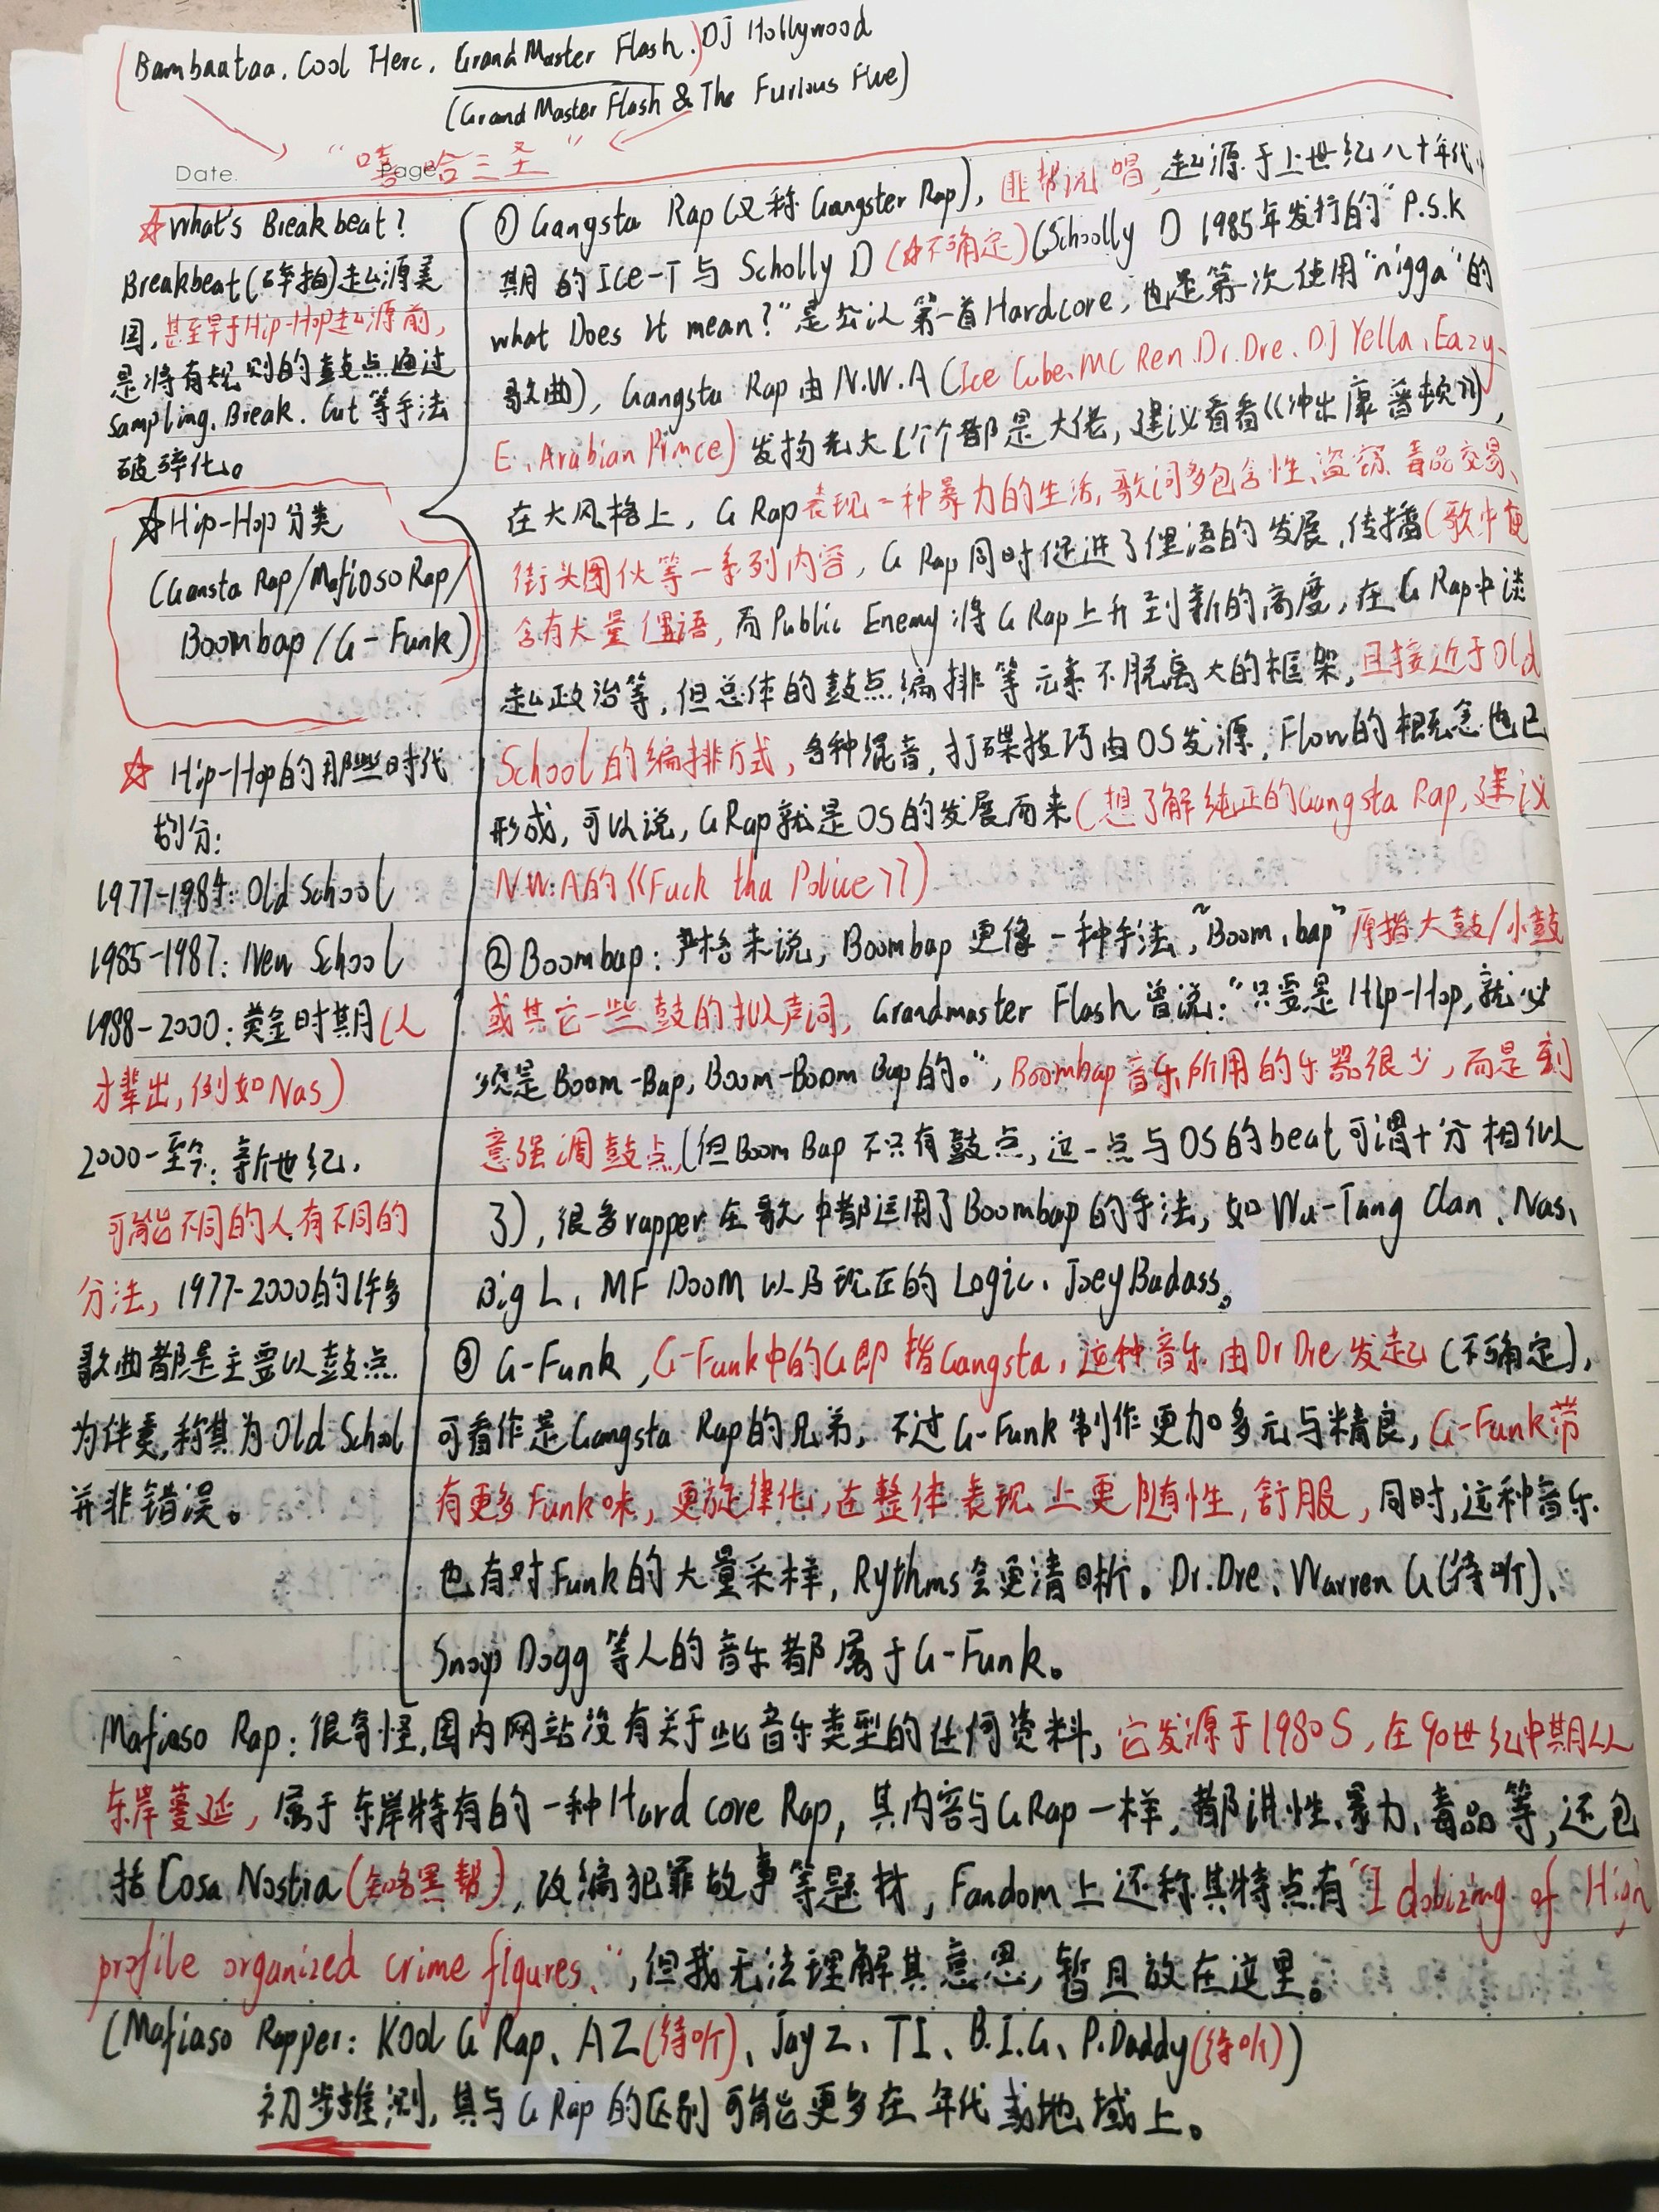 (Bambaataa. Cool Herc. Grand Master Flash.) DJ Hollywood
(Grand Master Flash & The Furious Five)
Date.
Page
"嘻哈三圣"
☆What's Breakbeat?
Breakbeat(碎拍)起源美
国,甚至早于Hip-Hop起源前,
是将有规则的鼓点通过
Sampling、Break. Cut等手法
破碎化。
☆Hip-Hop分类
(Gansta Rap/Mafioso Rap/
Boombap/G-Funk)
☆ Hip-Hop的那些时代
划分:
1977-1984: Old School
1985-1987: New School
1988-2000: 黄金时期(人
才辈出,例如Nas)
2000-至今: 新世纪.
可能不同的人有不同的
分法, 1977-2000的许多
歌曲都是主要以鼓点
为伴奏,称其为Old School
并非错误。
① Gangsta Rap(又称Gangster Rap), 匪帮说唱, 起源于上世纪八十年代
期的Ice-T与Scholly D(☆不确定)(Schoolly D 1985年发行的"P.S.K
what Does it mean?"是公认第一首Hardcore, 也是第一次使用"nigga"的
歌曲), Gangsta Rap由N.W.A(Ice Cube、MC Ren、Dr.Dre、DJ Yella、Eazy-
E、Arabian Prince)发扬光大(个个都是大佬, 建议看看《冲出康普顿》),
在大风格上, G Rap表现一种暴力的生活, 歌词多包含性、盗窃、毒品交易、
街头团伙等一系列内容, G Rap同时促进了俚语的发展,传播(歌中更
含有大量俚语, 而Public Enemy将G Rap上升到新的高度, 在G Rap中谈
起政治等, 但总体的鼓点编排等元素不脱离大的框架, 且接近于Old
School的编排方式, 各种混音, 打碟技巧由OS发源, Flow的概念也已
形成, 可以说, G Rap就是OS的发展而来(想了解纯正的Gangsta Rap,建议
N.W.A的《Fuck tha Police》)
② Boombap: 严格来说, Boombap更像一种手法, "Boom、bap"原指大鼓/小鼓
或其它一些鼓的拟声词, Grandmaster Flash曾说:"只要是Hip-Hop,就必
须是Boom-Bap, Boom-Boom Bap的。", Boombap音乐所用的乐器很少, 而是刻
意强调鼓点,(但Boom Bap不只有鼓点, 这一点与OS的beat可谓十分相似
了), 很多rapper在歌中都运用了Boombap的手法, 如Wu-Tang Clan、Nas、
Big L、MF DOOM以及现在的Logic、Joey Badass。
③ G-Funk, G-Funk中的G即指Gangsta, 这种音乐由Dr Dre发起(不确定),
可看作是Gangsta Rap的兄弟, 不过G-Funk制作更加多元与精良, G-Funk带
有更多Funk味, 更旋律化, 在整体表现上更随性, 舒服, 同时,这种音乐
也有对Funk的大量采样, Rythms会更清晰。Dr.Dre、Warren G(待听)、
Snoop Dogg等人的音乐都属于G-Funk。
Mafiaso Rap: 很奇怪,国内网站没有关于此音乐类型的任何资料, 它发源于1980S, 在90世纪中期从
东岸蔓延, 属于东岸特有的一种Hard core Rap, 其内容与G Rap一样, 都讲性、暴力、毒品等, 还包
括Cosa Nostia(知名黑帮), 改编犯罪故事等题材, Fandom上还称其特点有"Idolizing of High
profile organized crime figures.", 但我无法理解其意思, 暂且放在这里。
(Mafiaso Rapper: Kool G Rap、AZ(待听)、Jay Z、TI、B.I.G、P.Daddy(待听))
初步推测, 其与G Rap的区别可能更多在年代或地域上。